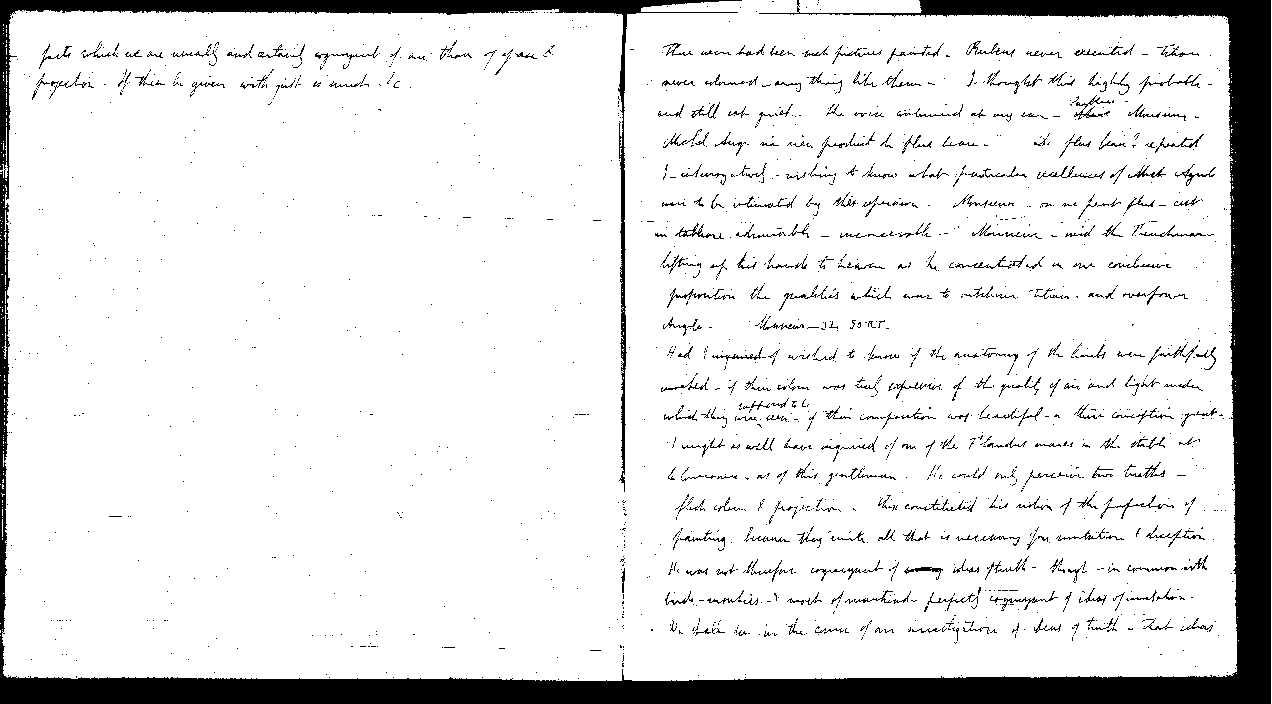 facts which we are usually and certainly cognizant of are than of space &
projection. If these be given with just as much. &c.
There never had been such pictures painted. Rubens never executed - Titian
never coloured - any thing like them - I thought this highly probable -
and still sat quiet. The voice continued at my ear - Monsieur -
Michel Ange n'a rien produit de plus beau. De plus beau? repeated
I - interrogatively - wishing to know what particular excellences of Michel Angelo
were to be intimated by this expression. Monsieur - on ne peut plus - c'est
un tableau admirable - inconcevable - Monsieur - said the Frenchman
lifting up his hands to heaven as he concentrated in one conclusive
proposition the qualities which were to outshine Titian and overpower
Angelo. Monsieur - IL SORT.
Had I wished to know if the anatomy of the limbs were faithfully
marked - if their colour was truly expressive of the quality of air and light under
which they were supposed to be - if their composition was beautiful - or their conception great -
I might as well have inquired of one of the Flanders mares in the stable
as of this gentleman. He could only perceive two truths -
flesh colour & projection. These constituted his notion of the perfection of
painting because they unite all that is necessary for imitation & deception
He was not therefore cognizant of ideas of truth - though - in common with
birds - monkies - & most of mankind perfectly cognizant of ideas of imitation.
We shall see in the course of our investigation of ideas of truth - that ideas